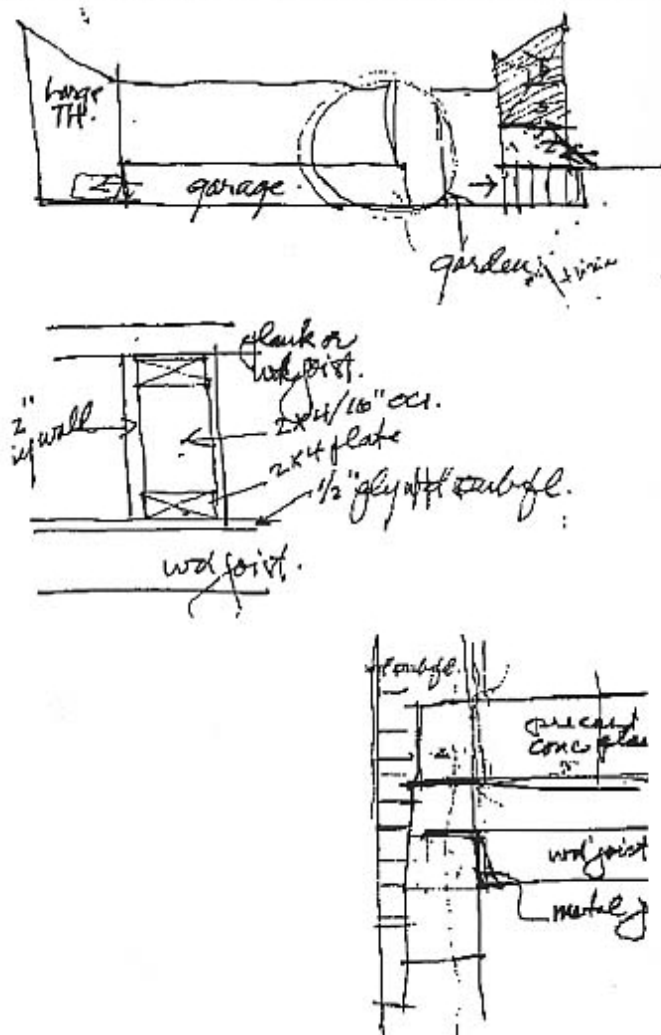 Large
TH.
garage
garden
plank or
wd joist.
2"
wall
2x4/16" occ.
2x4 plate
1/2" plywd subfl.
wd joist.
subfl.
precast
conc pla
wd joist
metal j